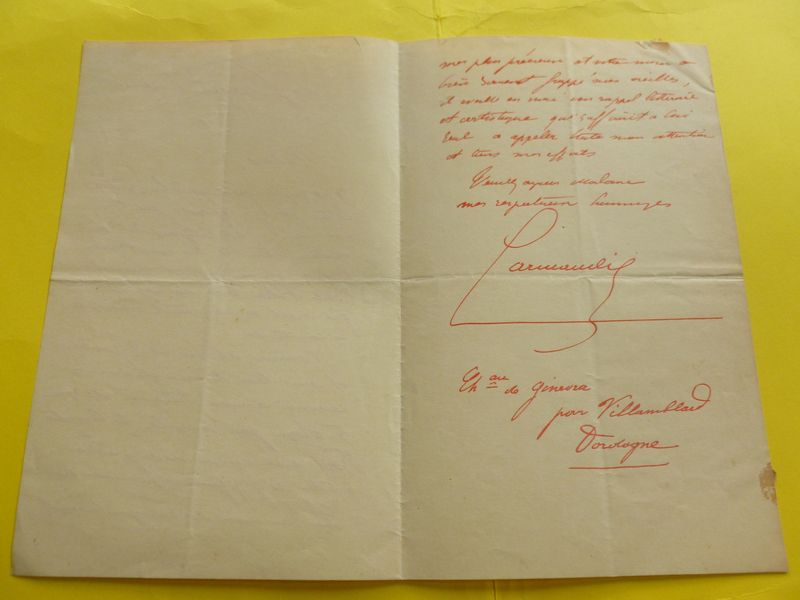 mes plus précieux et votre nom a
très souvent frappé mes oreilles,
il éveille en moi un rappel littéraire
et artistique qui suffirait a lui
seul a appeler toute mon attention
et tous mes efforts
Veuillez agréer Madame
mes respectueux hommages
Larmandie
Ch au de Ginevra
par Villamblard
Dordogne